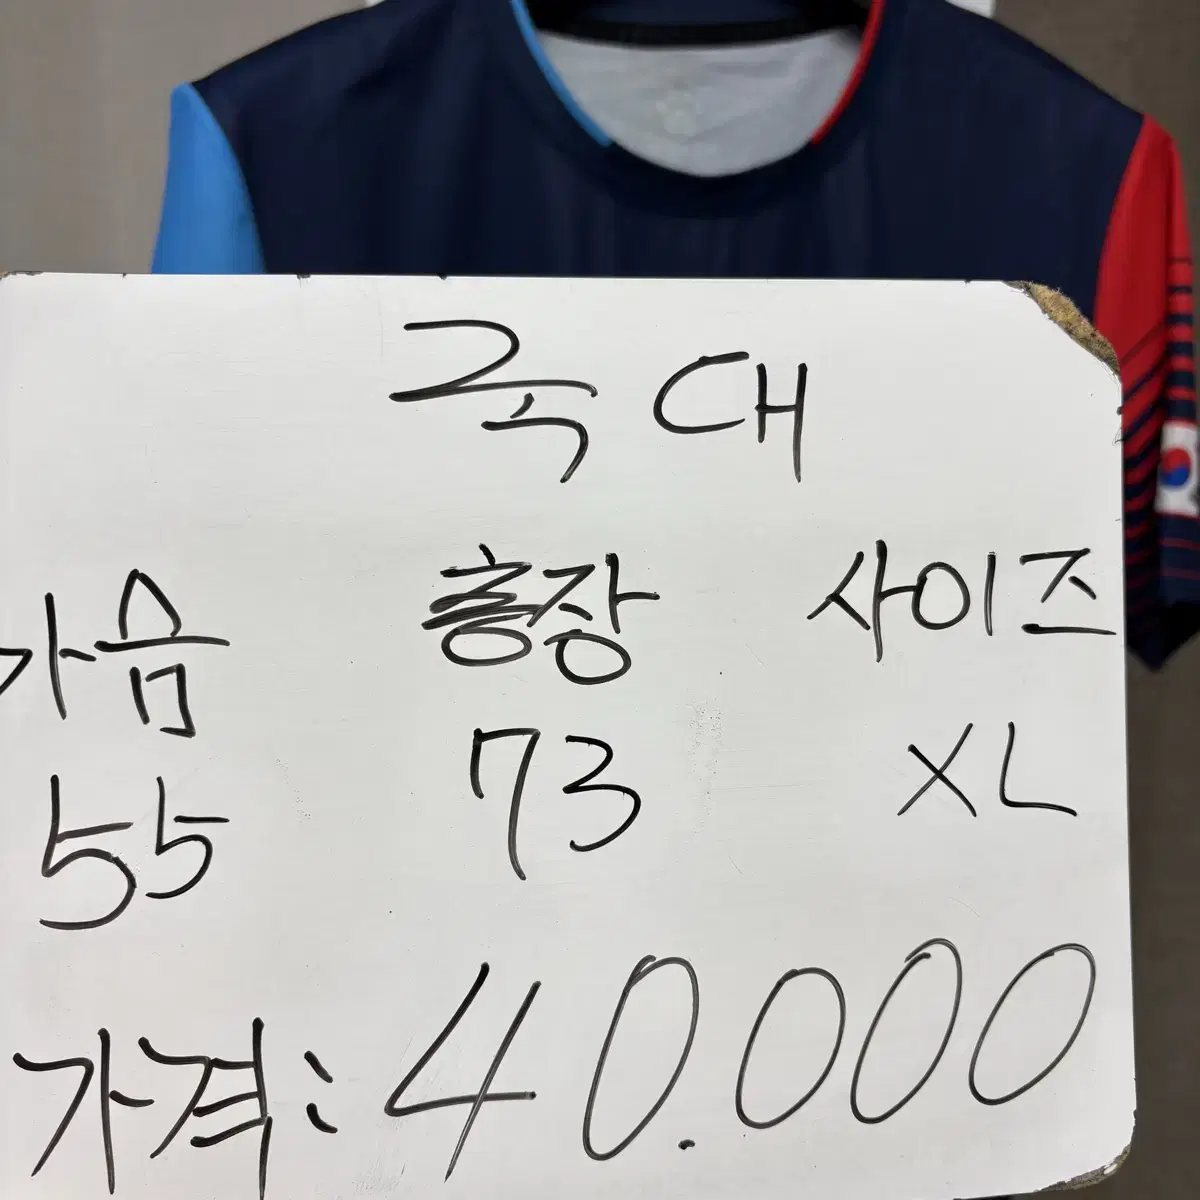 국대
가슴 총장 사이즈
55 73 XL
가격: 40.000